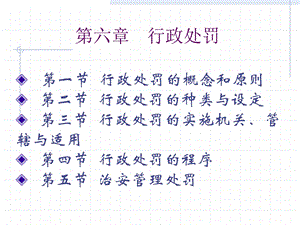 第六章 行政处罚
第一节 行政处罚的概念和原则
第二节 行政处罚的种类与设定
第三节 行政处罚的实施机关、管
辖与适用
第四节 行政处罚的程序
第五节 治安管理处罚